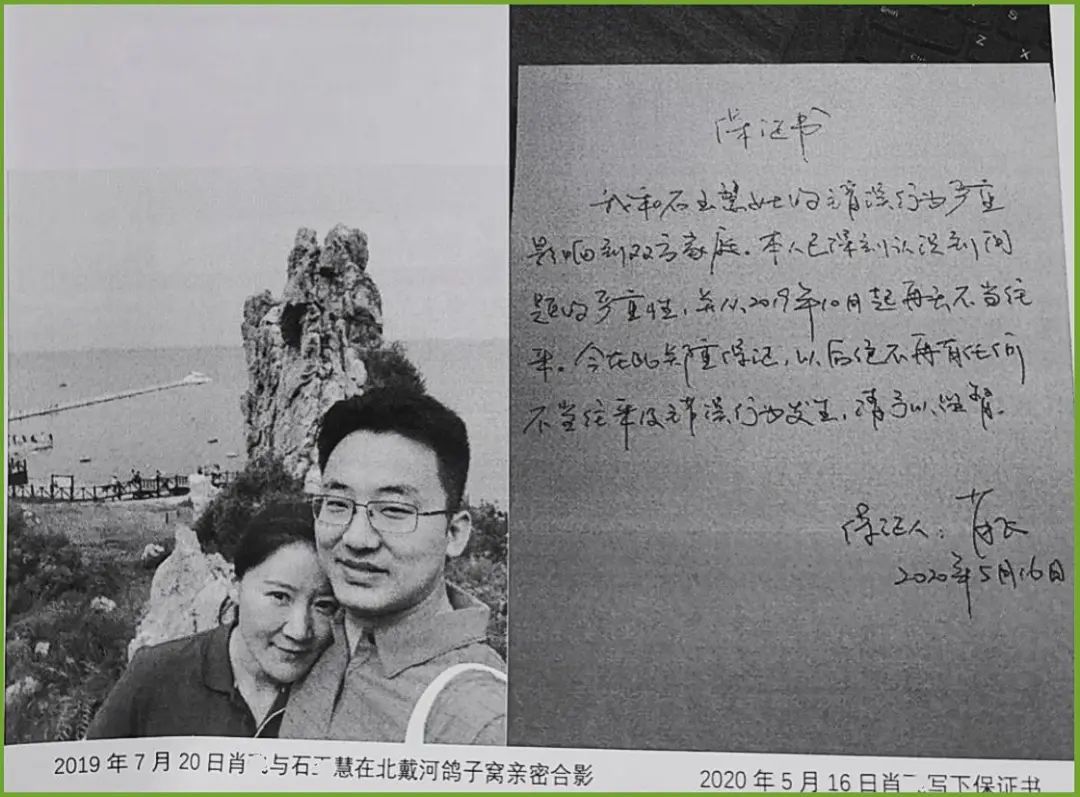 S
Z
X
保证书
我和石慧女士的错误行为严重
影响到双方家庭。本人已深刻认识到问
题的严重性，并从2019年10月起再无不当往
来。今在此郑重保证，以后绝不再有任何
不当往来及错误行为发生，请予以监督。
保证人：肖
2020年5月16日
2019年7月20日肖与石慧在北戴河鸽子窝亲密合影
2020年5月16日肖写下保证书